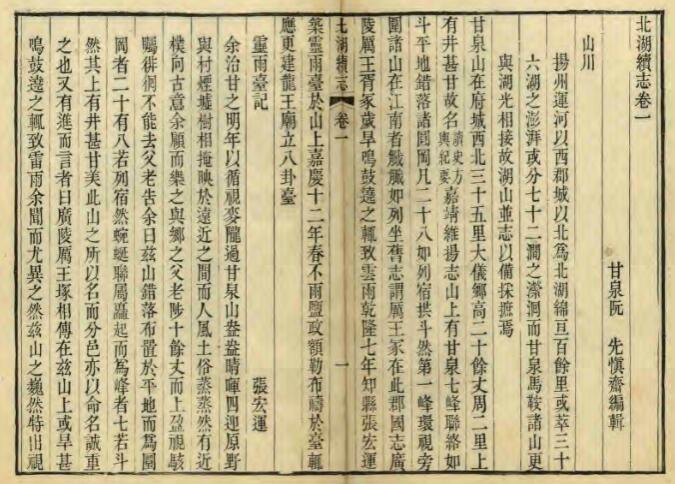 北湖續志卷一
甘泉阮　先愼齋編輯
山川
揚州運河以西郡城以北爲北湖綿亘百餘里或萃三十
六湖之澎湃或分七十二澗之瀠洄而甘泉馬鞍諸山更
與湖光相接故湖山並志以備採摭焉
甘泉山在府城西北三十五里大儀鄉高二十餘丈周二里上
有井甚甘故名讀史方輿紀要嘉靖維揚志山上有甘泉七峰聯絡如
斗平地錯落諸圓岡凡二十八如列宿拱斗然第一峰環視旁
圍諸山在江南者巉巉如列坐舊志謂厲王冢在此郡國志廣
陵厲王胥冢歲旱鳴鼓遶之輒致雲雨乾隆七年知縣張宏運
北湖續志
卷一
一
築靈雨臺於山上嘉慶十二年春不雨鹽政額勒布禱於臺輒
應更建龍王廟立八卦臺
靈雨臺記
張宏運
余治甘之明年以循視麥隴過甘泉山盎盎晴暉四迎原野
與村煙墟樹相掩映於遠近之間而人風土俗蒸蒸然有近
樸向古意余顧而樂之與鄉之父老陟十餘丈而上盈視駭
矚徘徊不能去父老告余曰茲山錯落布置於平地而爲圓
岡者二十有八若列宿然蜿蜒聯屬矗起而爲峰者七若斗
然其上有井甚甘美此山之所以名而分邑亦以命名誠重
之也又有進而言者曰廣陵厲王塚相傳在茲山上或旱甚
鳴鼓遶之輒致雷雨余聞而尤異之然茲山之巍然特出視